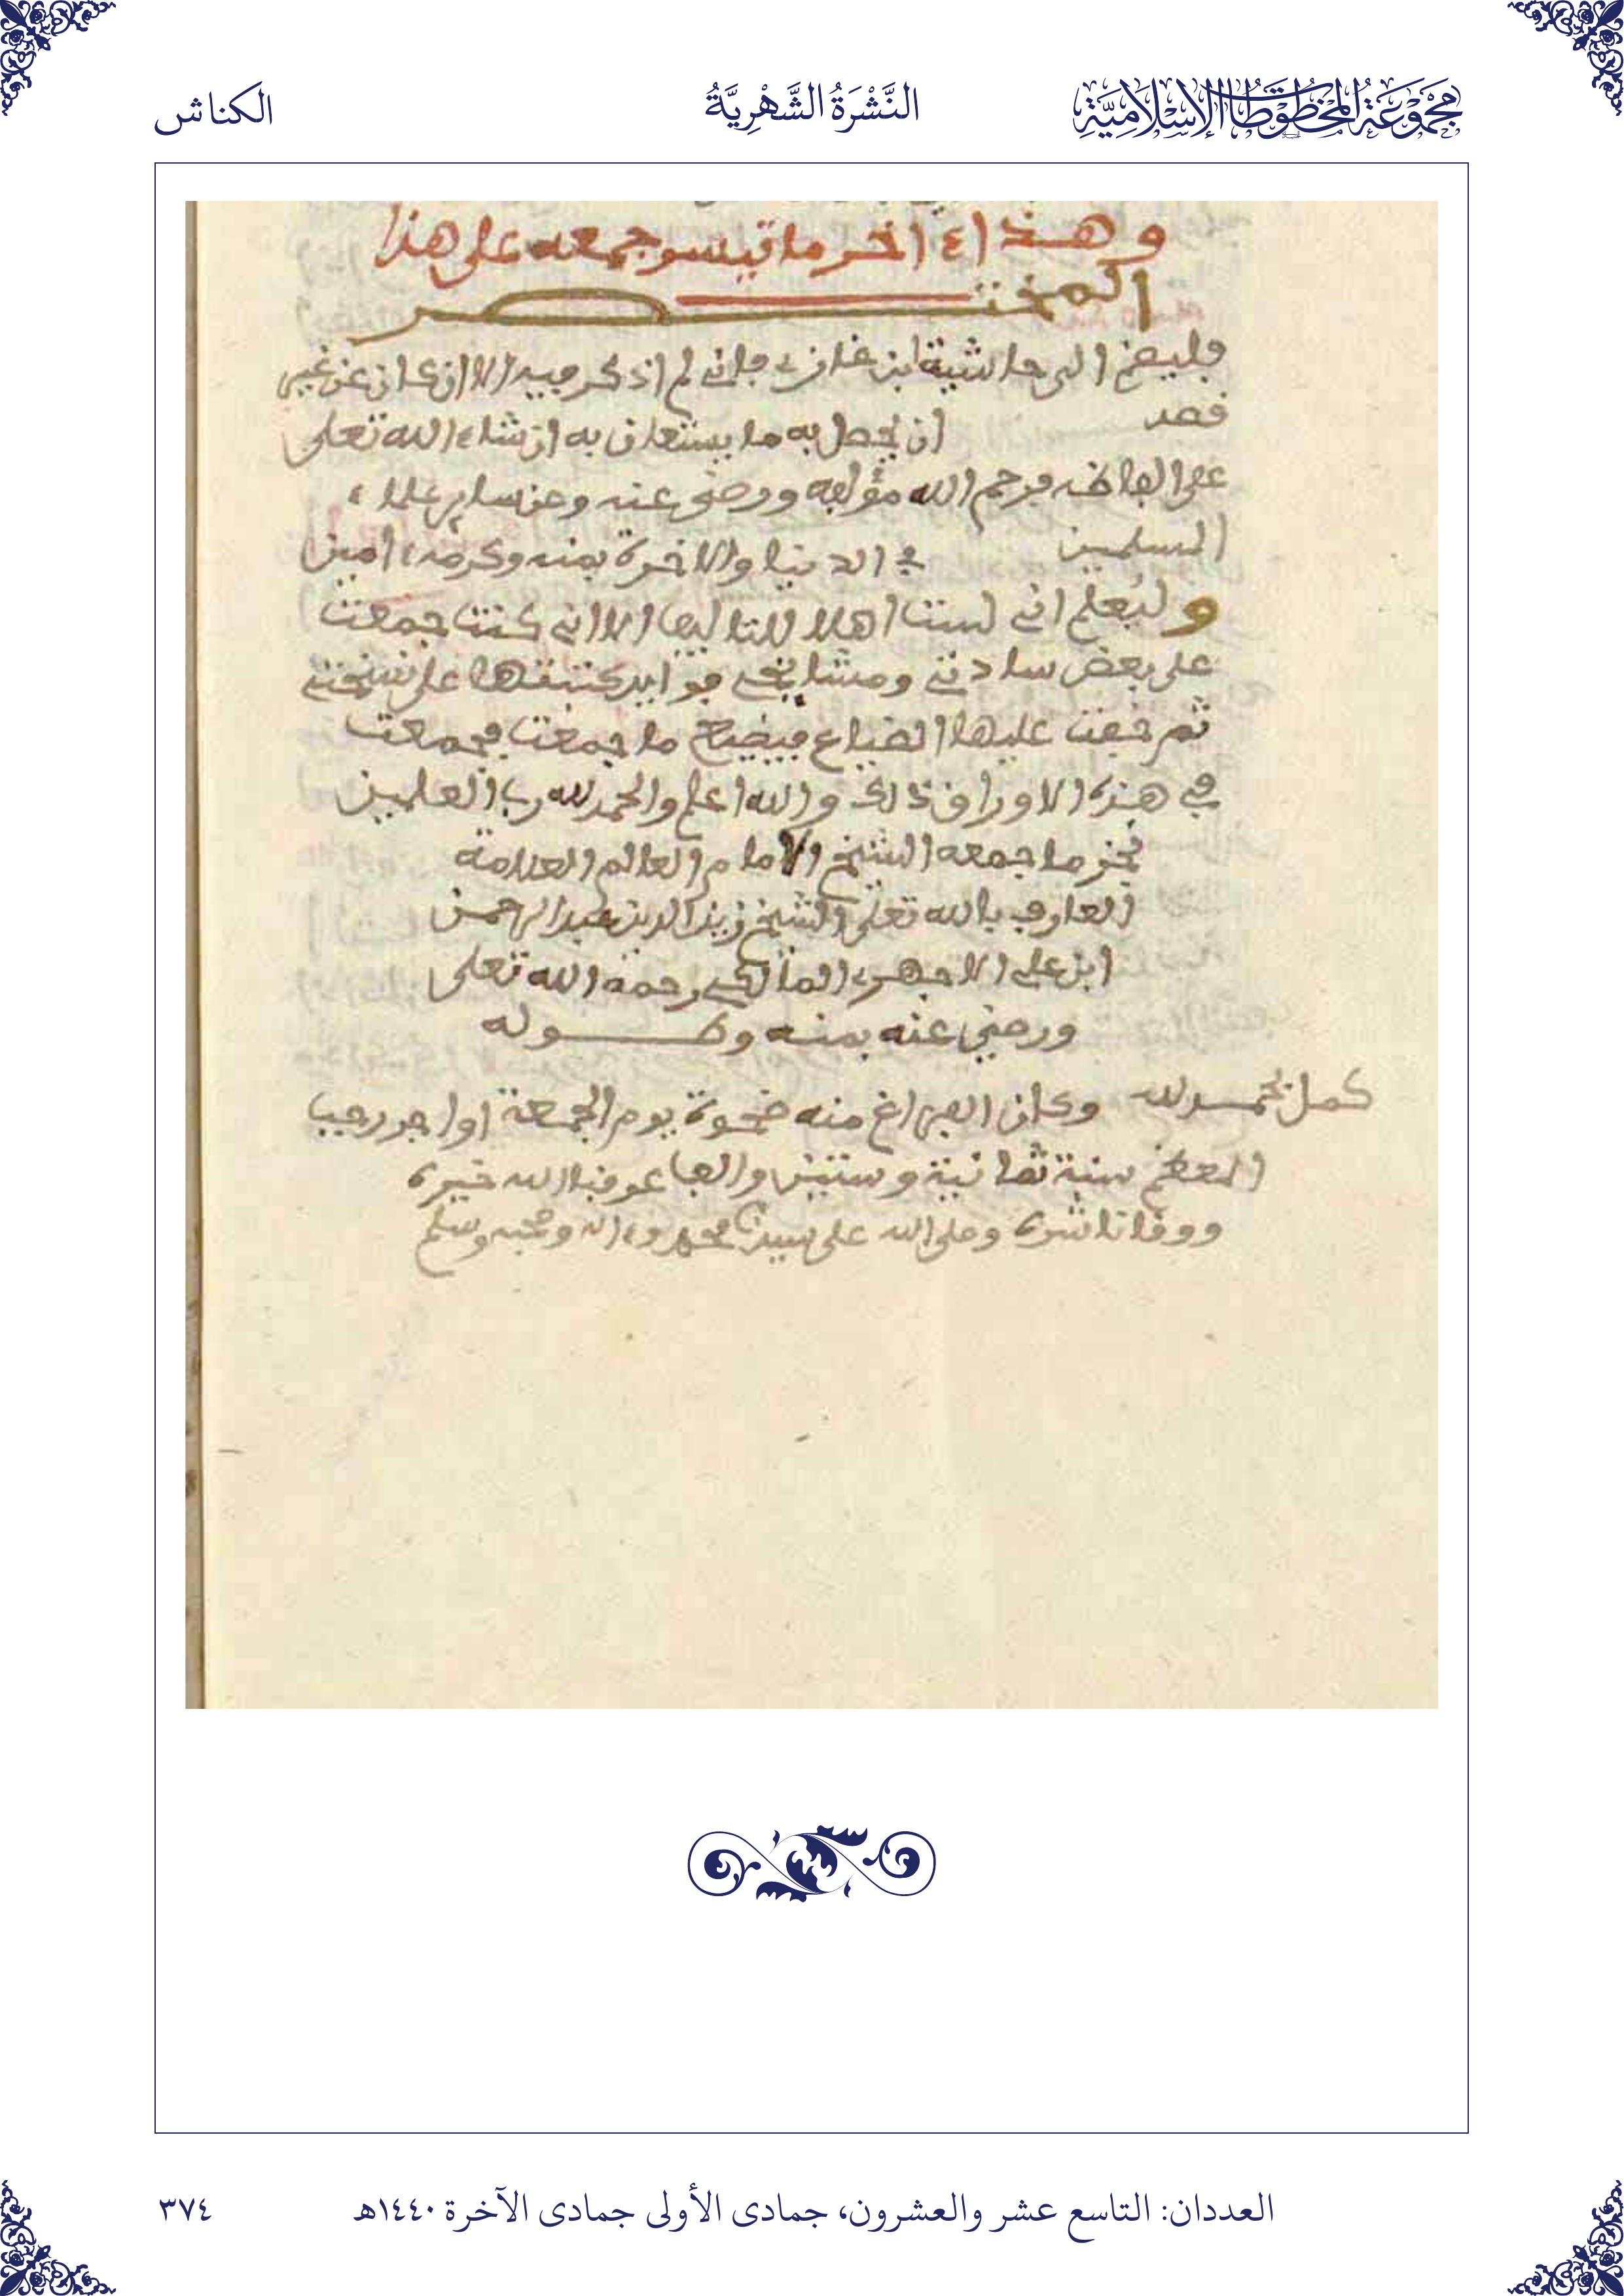 مَجْمُوعَةُ المَخْطُوطَاتِ الإِسْلَامِيَّةِ
النَّشْرَةُ الشَّهْرِيَّةُ
الكناش
وهذا ءاخر ما تيسر جمعه على هذا
المختصر
فليضم الى حاشية ابن غازي فاني لم اذكر فيه الا ان كان عن غيري
قصد ان يحصل به ما يستعان به ان شاء الله تعلى
على الفاظه فرحم الله مؤلفه ورضي عنه وعن ساير علماء
المسلمين في الدنيا والاخرة بمنه وكرمه ءامين
وليعلم اني لست اهلا للتاليف الا اني كنت جمعت
على بعض سادتي ومشايخي فوايد كتبتها على نسختي
ثم خفت عليها الضياع فيضيع ما جمعت فجمعت
في هذه الاوراق ذالك والله اعلم والحمد لله رب العلمين
نجز ما جمعه الشيخ الامام العالم العلامة
العارف بالله تعلى الشيخ زين الدين عبد الرحمن
ابن علي الاجهري المالكي رحمه الله تعلى
ورضي عنه بمنه وطوله
كمل بحمد لله وكان الفراغ منه ضحوة يوم الجمعة اواخر رجب
المعظم سنة ثمانية وستين والف عرفنا الله خيره
ووقانا شره وصلى الله على سيدنا محمد وءاله وصحبه وسلم
العددان: التاسع عشر والعشرون، جمادى الأولى جمادى الآخرة ١٤٤٠هـ
٣٧٤